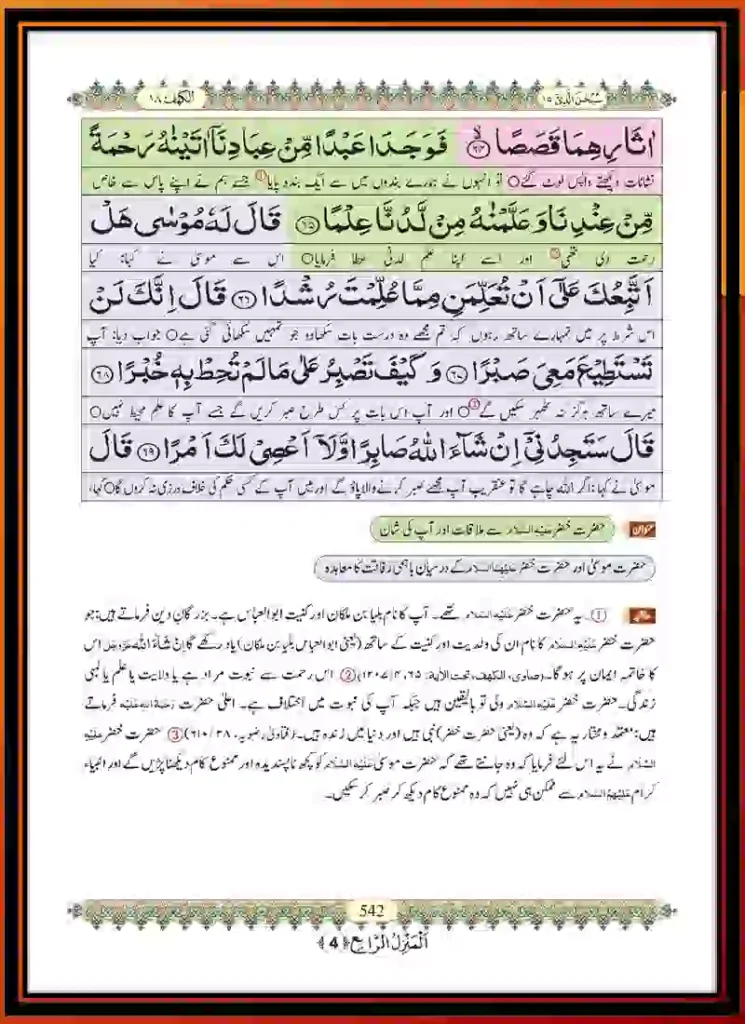 سُبْحٰنَ الَّذِیْۤ ١٥
الكهف ١٨
اٰثَارِهِمَا قَصَصًا ﴿٦٤﴾ فَوَجَدَا عَبْدًا مِّنْ عِبَادِنَاۤ اٰتَیْنٰهُ رَحْمَةً
نشانات دیکھتے واپس لوٹ گئے○ تو انہوں نے ہمارے بندوں میں سے ایک بندہ پایا① جسے ہم نے اپنے پاس سے خاص
مِّنْ عِنْدِنَا وَعَلَّمْنٰهُ مِنْ لَّدُنَّا عِلْمًا ﴿٦٥﴾ قَالَ لَهٗ مُوْسٰى هَلْ
رحمت دی تھی② اور اسے اپنا علم لدنی عطا فرمایا○ اس سے موسیٰ نے کہا: کیا
اَتَّبِعُكَ عَلٰۤى اَنْ تُعَلِّمَنِ مِمَّا عُلِّمْتَ رُشْدًا ﴿٦٦﴾ قَالَ اِنَّكَ لَنْ
اس شرط پر میں تمہارے ساتھ رہوں کہ تم مجھے وہ درست بات سکھادو جو تمہیں سکھائی گئی ہے○ جواب دیا: آپ
تَسْتَطِیْعَ مَعِیَ صَبْرًا ﴿٦٧﴾ وَ كَیْفَ تَصْبِرُ عَلٰى مَا لَمْ تُحِطْ بِهٖ خُبْرًا ﴿٦٨﴾
میرے ساتھ ہرگز نہ ٹھہر سکیں گے③○ اور آپ اس بات پر کس طرح صبر کریں گے جسے آپ کا علم محیط نہیں○
قَالَ سَتَجِدُنِیْۤ اِنْ شَآءَ اللّٰهُ صَابِرًا وَّلَاۤ اَعْصِیْ لَكَ اَمْرًا ﴿٦٩﴾ قَالَ
موسیٰ نے کہا: اگر اللہ چاہے گا تو عنقریب آپ مجھے صبر کرنے والا پاؤ گے اور میں آپ کے کسی حکم کی خلاف ورزی نہ کروں گا○ کہا،
عنوان حضرت خضر عَلَیْهِ السَّلَام سے ملاقات اور آپ کی شان
حضرت موسیٰ اور حضرت خضر عَلَیْهِمَا السَّلَام کے درمیان باہمی رفاقت کا معاہدہ
حاشیہ ①۔ یہ حضرت خضر عَلَیْهِ السَّلَام تھے۔ آپ کا نام بلیا بن ملکان اور کنیت ابو العباس ہے۔ بزرگانِ دین فرماتے ہیں: جو
حضرت خضر عَلَیْهِ السَّلَام کا نام ان کی ولدیت اور کنیت کے ساتھ (یعنی ابو العباس بلیا بن ملکان) یاد رکھے گا اِنْ شَآءَ اللہ عَزَّوَجَلَّ اس
کا خاتمہ ایمان پر ہوگا۔ (صاوی، الکھف، تحت الآیة: ٦٥، ٤/١٢٠٧) ② اس رحمت سے نبوت مراد ہے یا ولایت یا علم یا لمبی
زندگی۔ حضرت خضر عَلَیْهِ السَّلَام ولی تو بالیقین ہیں جبکہ آپ کی نبوت میں اختلاف ہے۔ اعلیٰ حضرت رَحْمَةُ اللہِ عَلَیْهِ فرماتے
ہیں: معتمد و مختار یہ ہے کہ وہ (یعنی حضرت خضر) نبی ہیں اور دنیا میں زندہ ہیں۔ (فتاویٰ رضویہ، ۲۸/۶۱۰) ③ حضرت خضر عَلَیْهِ
السَّلَام نے یہ اس لئے فرمایا کہ وہ جانتے تھے کہ حضرت موسیٰ عَلَیْهِ السَّلَام کو کچھ ناپسندیدہ اور ممنوع کام دیکھنا پڑیں گے اور انبیاء
کرام عَلَیْهِمُ السَّلَام سے ممکن ہی نہیں کہ وہ ممنوع کام دیکھ کر صبر کر سکیں۔
542
اَلْمَنْزِلُ الرَّابِع ﴿4﴾